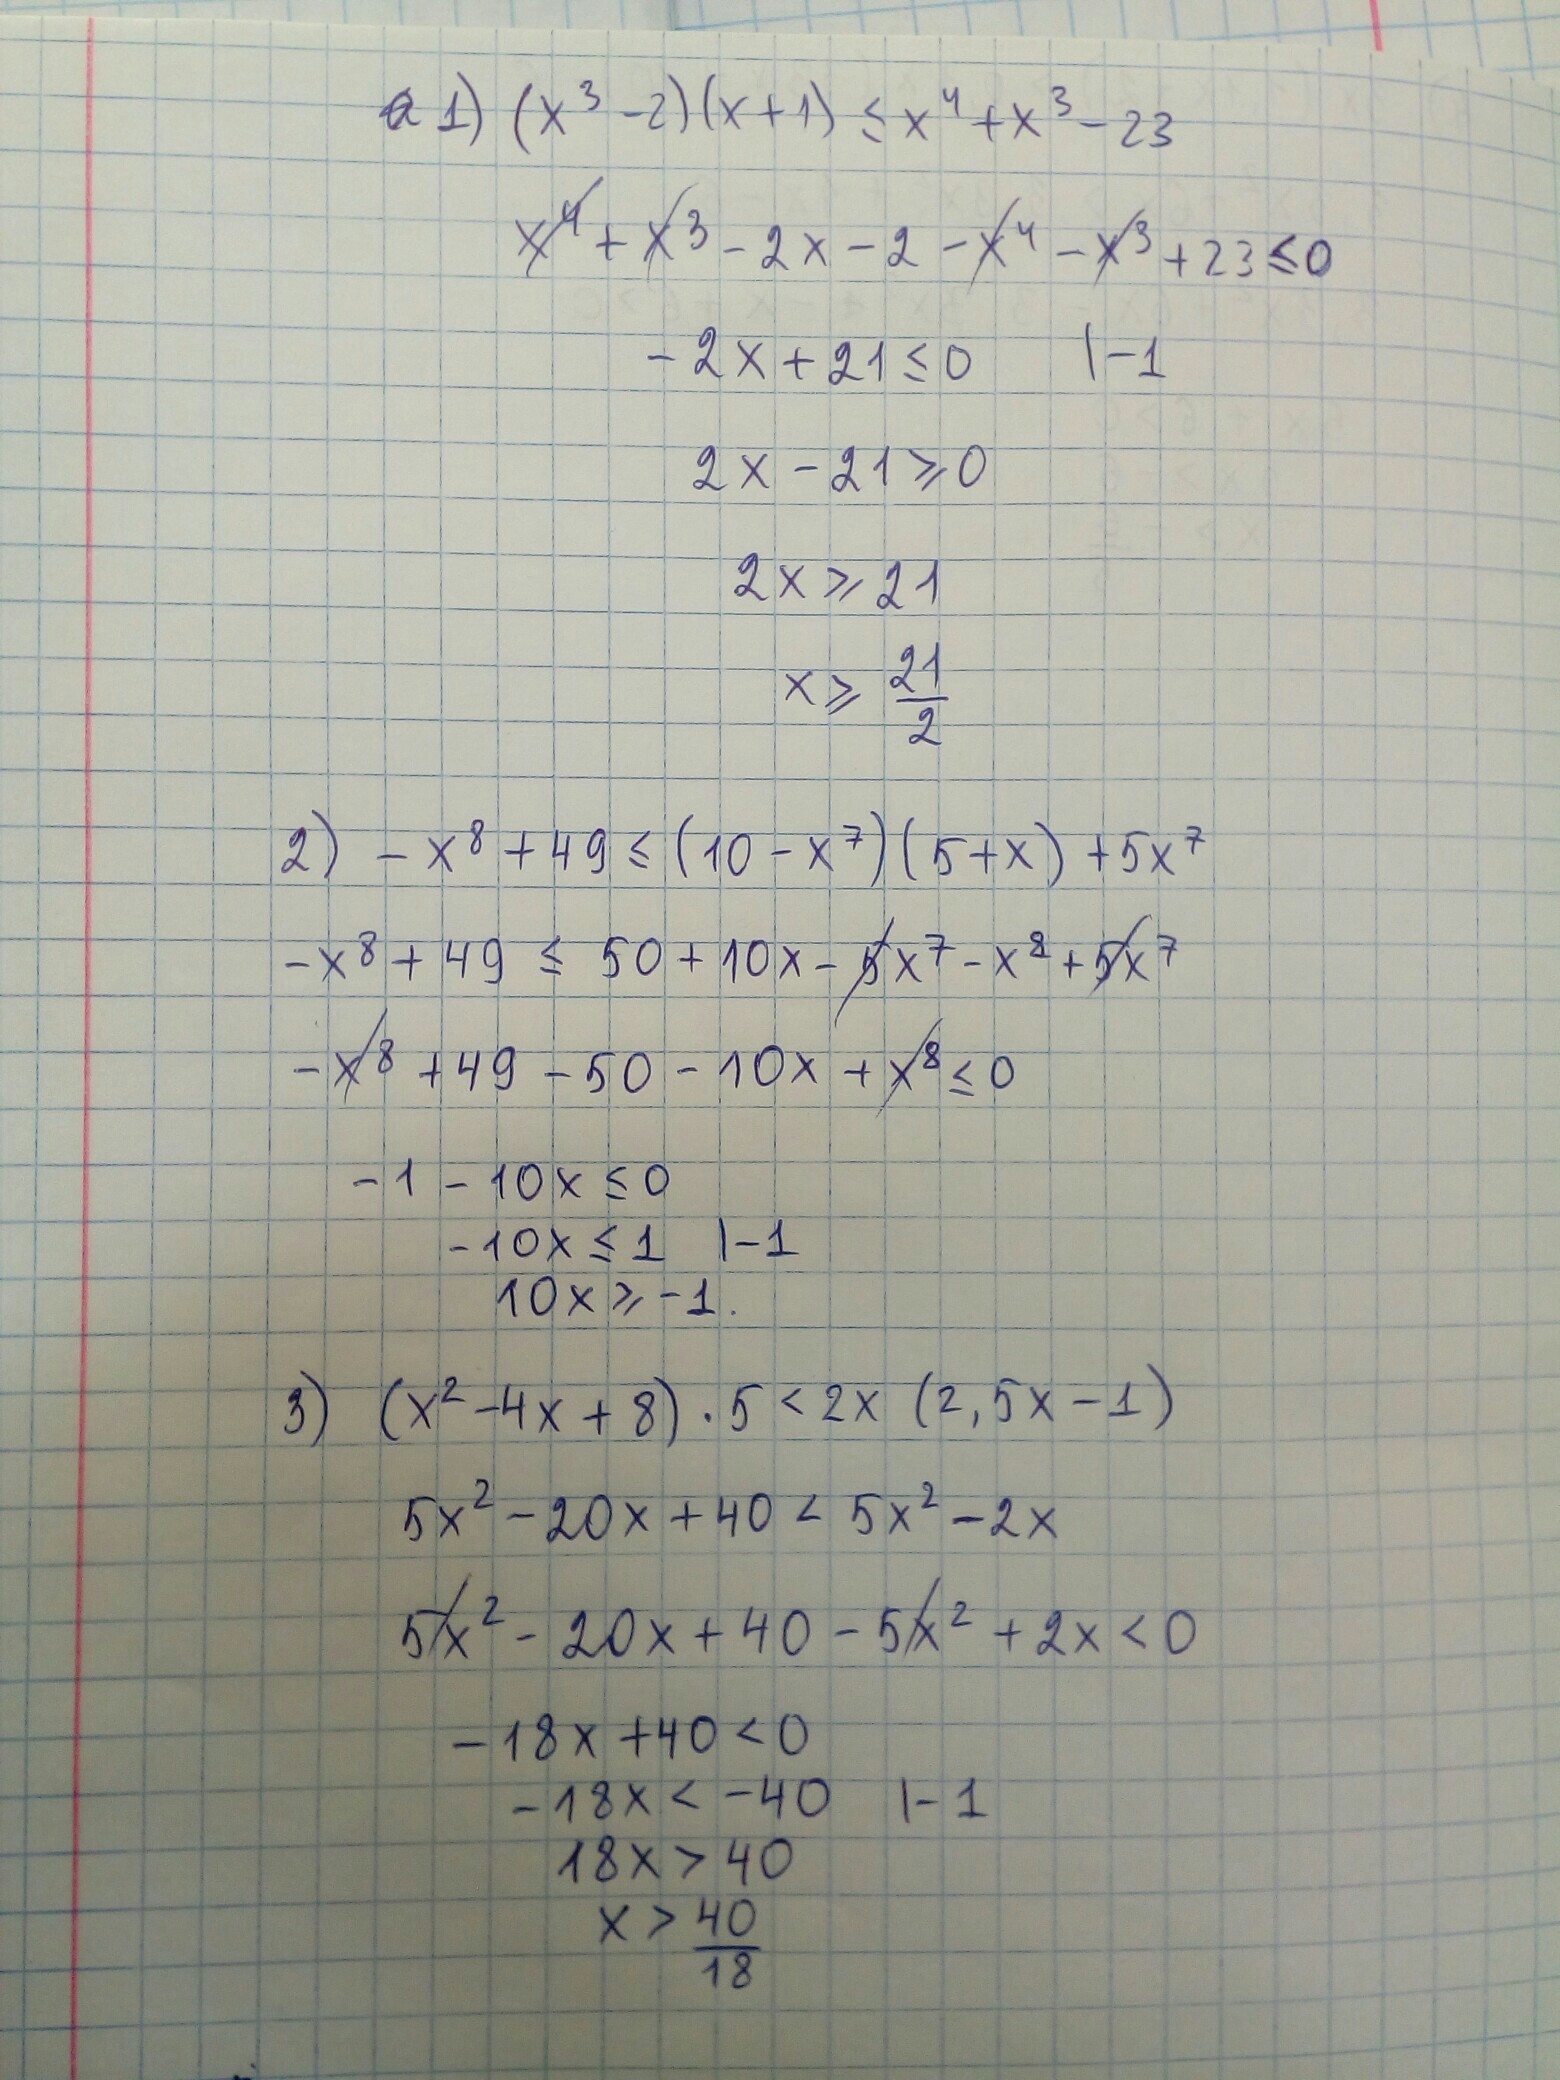 a 1) (x³ - 2)(x + 1) ≤ x⁴ + x³ - 23
x⁴ + x³ - 2x - 2 - x⁴ - x³ + 23 ≤ 0
- 2x + 21 ≤ 0 | -1
2x - 21 ⩾ 0
2x ⩾ 21
x ⩾ 21/2
2) - x⁸ + 49 ≤ (10 - x⁷)(5 + x) + 5x⁷
- x⁸ + 49 ≤ 50 + 10x - 5x⁷ - x⁸ + 5x⁷
- x⁸ + 49 - 50 - 10x + x⁸ ≤ 0
- 1 - 10x ≤ 0
- 10x ≤ 1 | -1
10x ⩾ -1.
3) (x² - 4x + 8) · 5 < 2x (2,5x - 1)
5x² - 20x + 40 < 5x² - 2x
5x² - 20x + 40 - 5x² + 2x < 0
- 18x + 40 < 0
- 18x < - 40 | - 1
18x > 40
x > 40/18